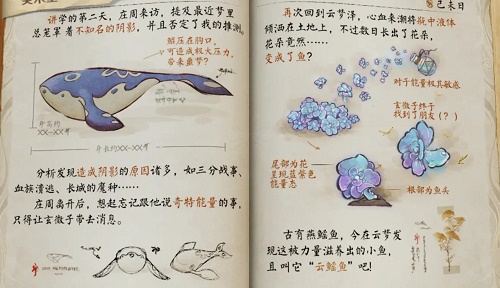 己未日
讲学的第二天，庄周来访，提及最近梦里
总笼罩着不知名的阴影，并且否定了我的推测。
鲲压在胸口，
可造成极大压力，
带来噩梦？
身高约
XX—XX
身长约XX—XX
分析发现造成阴影的原因诸多，如三分战事、
血族溃逃、长城的魔种……
在庄周离开后，想起忘记跟他说奇特能量的事，
只得让玄微子带去消息。
再次回到云梦泽，心血来潮将瓶中液体
倾洒在土地上，不过数日长出了花朵，
花朵竟然……
变成了鱼？
对于能量极其敏感
玄微子终于
找到了朋友（？）
尾部为花
呈现蓝紫色
能量态
根部为鱼头
古有燕鳐鱼，今在云梦发
现这被力量滋养出的小鱼，
且叫它“云鳐鱼”吧！